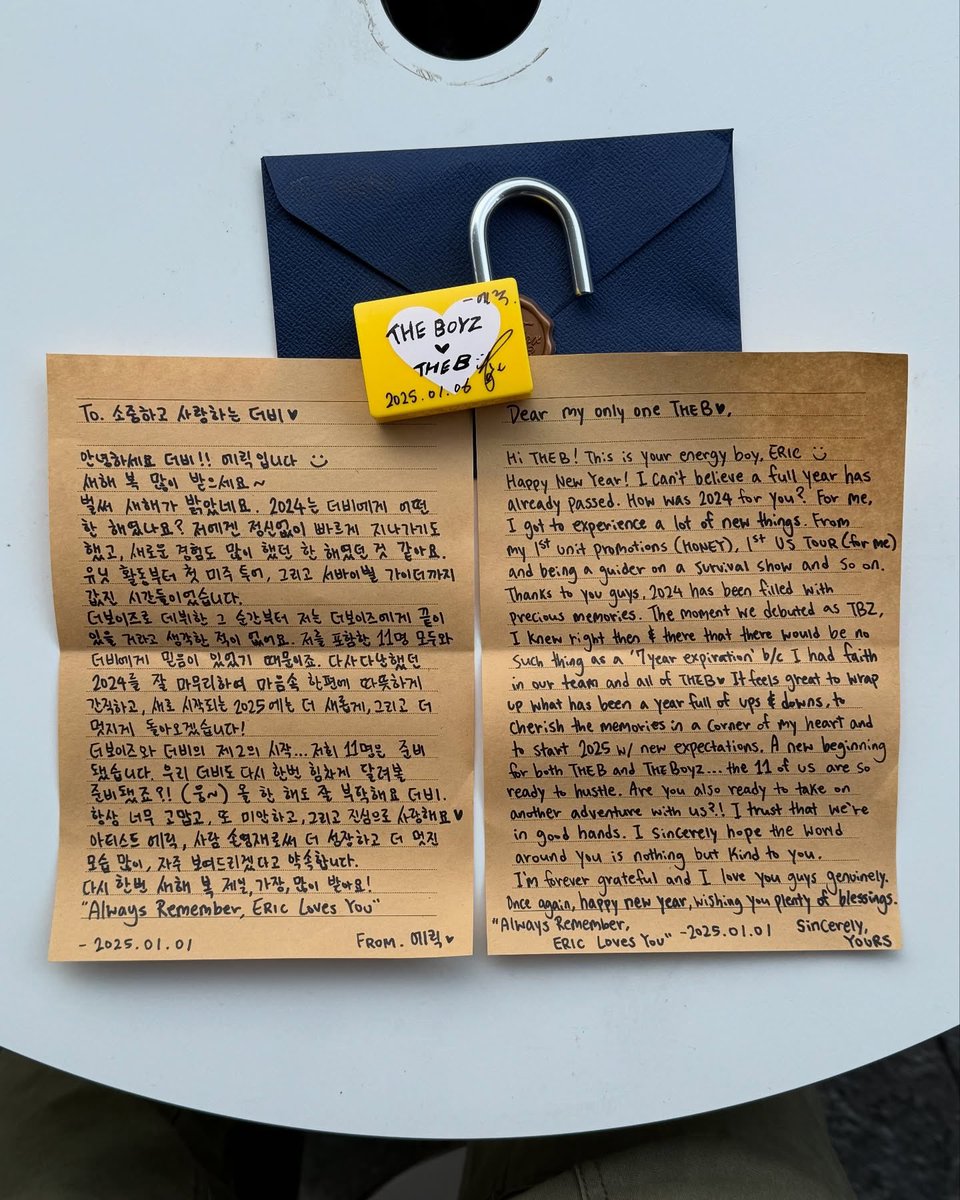 -에릭.
THE BOYZ
♥
THE B
2025.01.06
To. 소중하고 사랑하는 더비♥
안녕하세요 더비!! 에릭입니다 :)
새해 복 많이 받으세요~
벌써 새해가 밝았네요. 2024는 더비에게 어떤
한 해였나요? 저에겐 정신없이 빠르게 지나가기도
했고, 새로운 경험도 많이 했던 한 해였던 것 같아요.
유닛 활동부터 첫 미주 투어, 그리고 서바이벌 가이더까지
값진 시간들이었습니다.
더보이즈로 데뷔한 그 순간부터 저는 더보이즈에게 끝이
있을 거라고 생각한 적이 없어요. 저를 포함한 11명 모두와
더비에게 믿음이 있었기 때문이죠. 다사다난했던
2024를 잘 마무리하여 마음속 한편에 따뜻하게
간직하고, 새로 시작되는 2025에는 더 새롭게, 그리고 더
멋지게 돌아오겠습니다!
더보이즈와 더비의 제2의 시작... 저희 11명은 준비
됐습니다. 우리 더비도 다시 한번 힘차게 달려볼
준비됐죠?! (웅~) 올 한 해도 잘 부탁해요 더비.
항상 너무 고맙고, 또 미안하고, 그리고 진심으로 사랑해요♥
아티스트 에릭, 사람 손영재로써 더 성장하고 더 멋진
모습 많이, 자주 보여드리겠다고 약속합니다.
다시 한번 새해 복 제일, 가장, 많이 받아요!
"Always Remember, ERIC Loves You"
- 2025.01.01 FROM. 에릭♥
Dear my only one THE B♥,
Hi THE B! This is your energy boy, ERIC :)
Happy New Year! I can't believe a full year has
already passed. How was 2024 for you? For me,
I got to experience a lot of new things. From
my 1st unit promotions (HONEY), 1st US TOUR (for me)
and being a guider on a survival show and so on.
Thanks to you guys, 2024 has been filled with
precious memories. The moment we debuted as TBZ,
I knew right then & there that there would be no
such thing as a '7year expiration' b/c I had faith
in our team and all of THE B♥ It feels great to wrap
up what has been a year full of ups & downs, to
cherish the memories in a corner of my heart and
to start 2025 w/ new expectations. A new beginning
for both THE B and THE BOYZ... the 11 of us are so
ready to hustle. Are you also ready to take on
another adventure with us?! I trust that we're
in good hands. I sincerely hope the world
around you is nothing but kind to you.
I'm forever grateful and I love you guys genuinely.
Once again, happy new year, wishing you plenty of blessings.
"Always Remember,
ERIC Loves You" - 2025.01.01 Sincerely,
YOURS